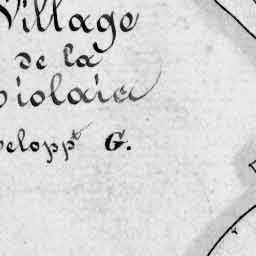 Village
de la
iolaie
velopp^t G.